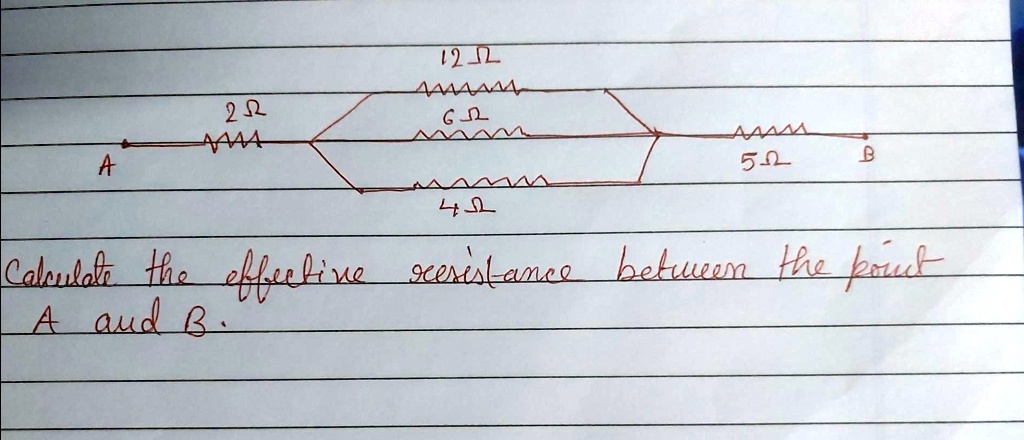 12 Ω
2 Ω
6 Ω
A
5 Ω
B
4 Ω
Calculate the effective resistance between the point
A and B.